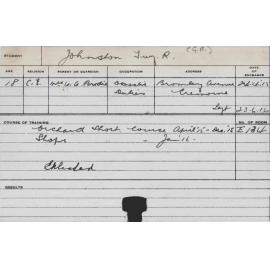 STUDENT Johnston Guy R. (G.R.)
AGE RELIGION PARENT OR GUARDIAN OCCUPATION ADDRESS DATE OF ENTRANCE
18 C.E. Mrs Domestic Bromley Avenue
Duties Cremorne
Left 23-6-16
COURSE OF TRAINING No. OF ROOM
Orchard Short Course April 15 - Dec. 15
Shops - Jan 16 -
Enlisted
RESULTS